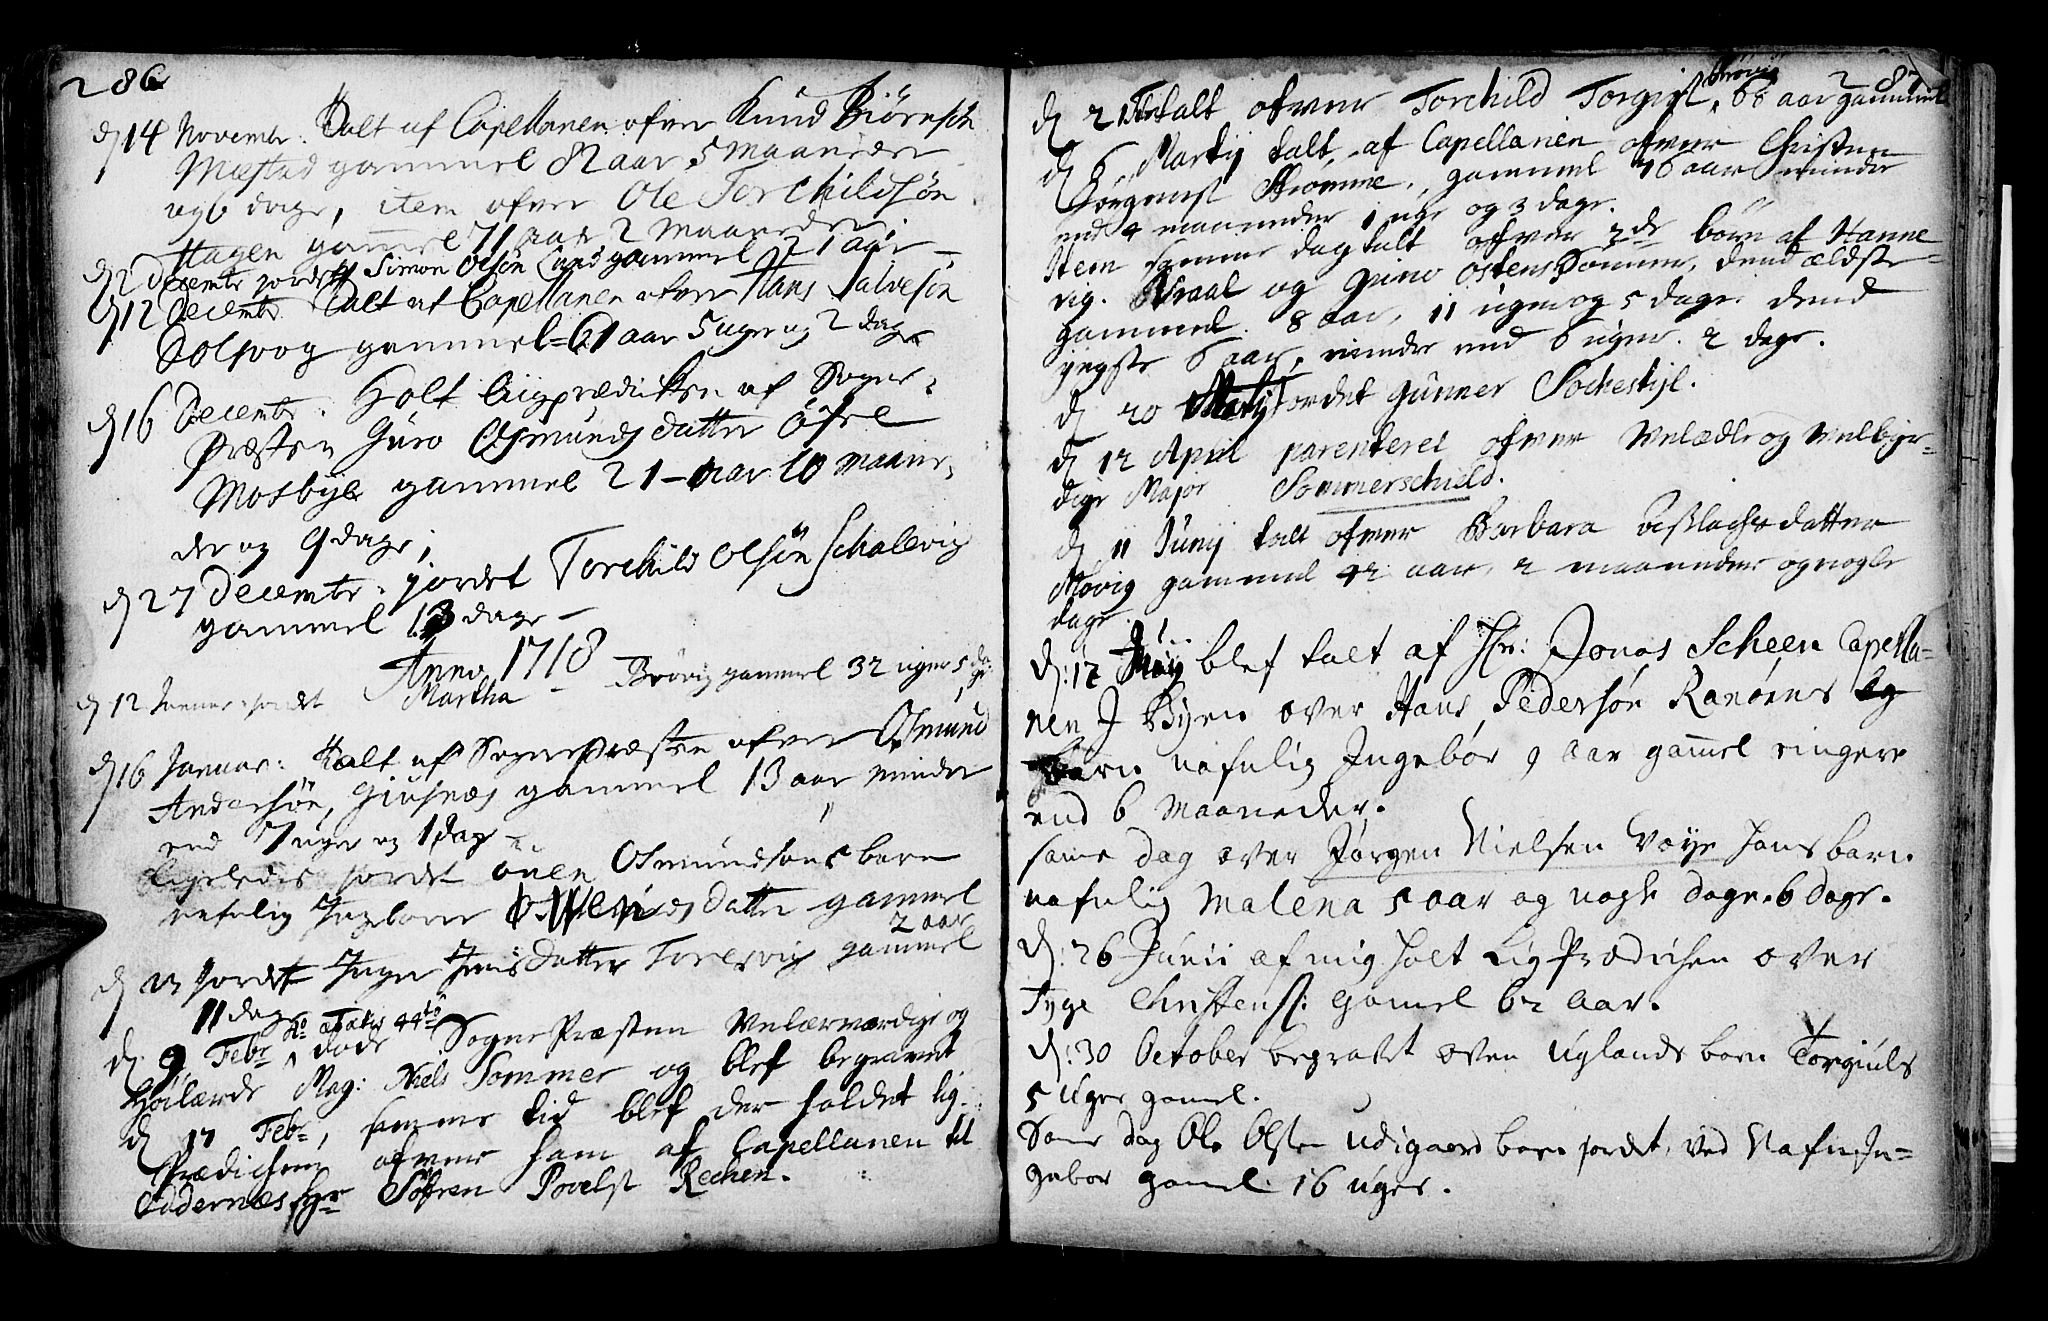 286
d 14 Novembr: Talt af Capellanen ofver Knud Biörnsön
Mæstad gammel 82 aar 5 maaneder
og 6 dage, item ofver Ole Torchildsön
Hagen gam̄el 71 aar 2 maaneder.
d 2 Decembr jordet Simon Olsön Lund gammel 21 aar –
d 12 Decembr Talt af Capellanen ofver Hans Salvesön
Dolsvog gammel 61 aar 5 uger og 2 dage
d 16 Decembr. Holt liigprædicken af Sogne-
Præsten Guro Osmunds datter Öfre
Mosbye gammel 21 aar 10 maane-
der og 9 dage;
d 27 Decembr. jordet Torchild Olsön Schalevig
gammel 13 dage –
Anno 1718
d 12 Januar: jordet Martha – Brövig gammel 32 uger 5 da-
ge
d 16 Januar: Talt af Sognepræsten ofver Osmund
Andersön, gammel 13 aar minder
end 7 uger og 1 dag –
ligeledes jordet Osmundsöns barn
nafnlig Ingebor datter gammel
2 aar
d 23 jordet Inger Jens Datter Toresvig gammel
11 dage
d 9 Febr döde Ao ætatis 44to SognePræsten Velærværdige og
Höilærde Mag: Niels Sommer og blef begravet
d 17 Febr, samme tid blef der holdet lig-
Prædichen ofver ham af Capellanen til
Oddernæs Hr Söfren Povelss Rechen.
287
d 21 Febr talt ofver Torchild Torgiss Brövig 68 aar gammel
d 6 Martij talt af Capellanen ofver Christen
Börgenss Strömme, gammel 76 aar minder
end 4 maaneder 1 uge og 3 dage.
Item samme dag talt ofver 2de börn af Hanne
vig. Braal og Guno Ostens Somme, dend ældste
gammel 8 aar, 11 uger og 5 dage dend
yngste 6 aar, minder end 6 uger 2 dage.
d 20 jordet Gunner Sochestýl.
d 12 April parenteret ofver Velædle og Velbyr-
dige Major Sommerschild.
d 11 Junij talt ofver Barbara Aslachs datter
Movig gammel 42 aar, 2 maaneder og nogle
dage.
d: 12 Junij blef talt af Hr: Jonas Scheen Capella-
nen J Byen over Hans Pedersön Ranörns
barn nafnlig Ingebor 9 aar gam̄el ringere
end 6 Maaneder.
sam̄e dag over Jörgen Nielsen Voye hans barn
nafnlig Malena 5 aar og nogle dage. 6 dage.
d: 26 Junii af mig holt Lig Prædichen over
Tyge Christenss: gamel 62 aar.
d: 30 October begravet oven Uglands barn Torgiuls
5 Uger gamel.
Same dag Ole Olsen Udigaard barn jordet, ved Nafn In-
gebor gamel 16 uger.